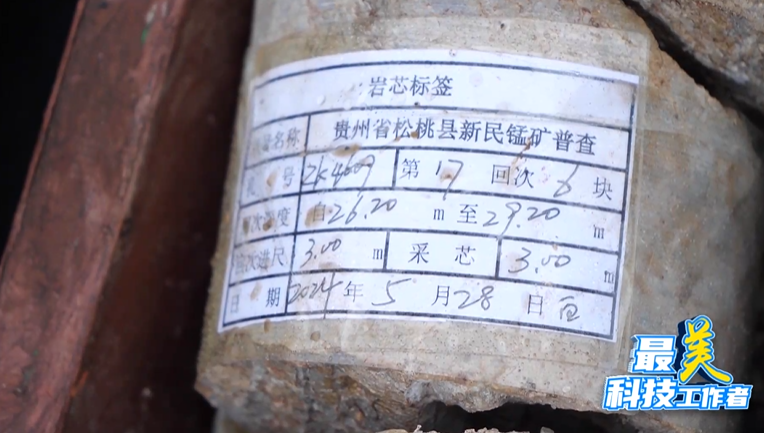 岩芯标签
名称 贵州省松桃县新民锰矿普查
号 ZK4609 第 17 回次 6 块
次 度 自26.20 m 至29.20 m
次进尺 3.00 m 采芯 3.00 m
日期 2024 年 5 月 28 日
最美
科技工作者